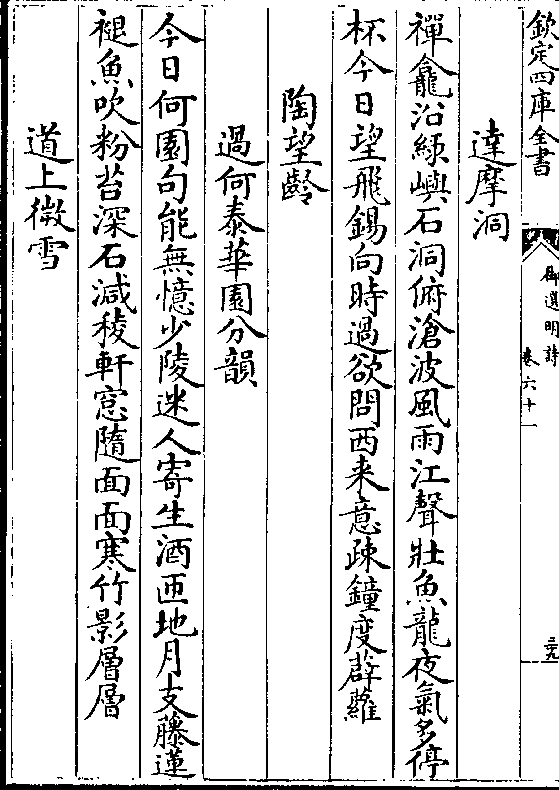 欽定四庫全書
御選明詩
卷六十一
三九
達摩洞
禪龕沿綠嶼石洞俯滄波風雨江聲壯魚龍夜氣多停
杯今日望飛錫向時過欲問西来意疎鐘度薜蘿
陶望齡
過何泰華園分韻
今日何園句能無憶少陵迷人寄生酒匝地月支藤蓮
褪魚吹粉苔深石減稜軒窓隨面面寒竹影層層
道上微雪